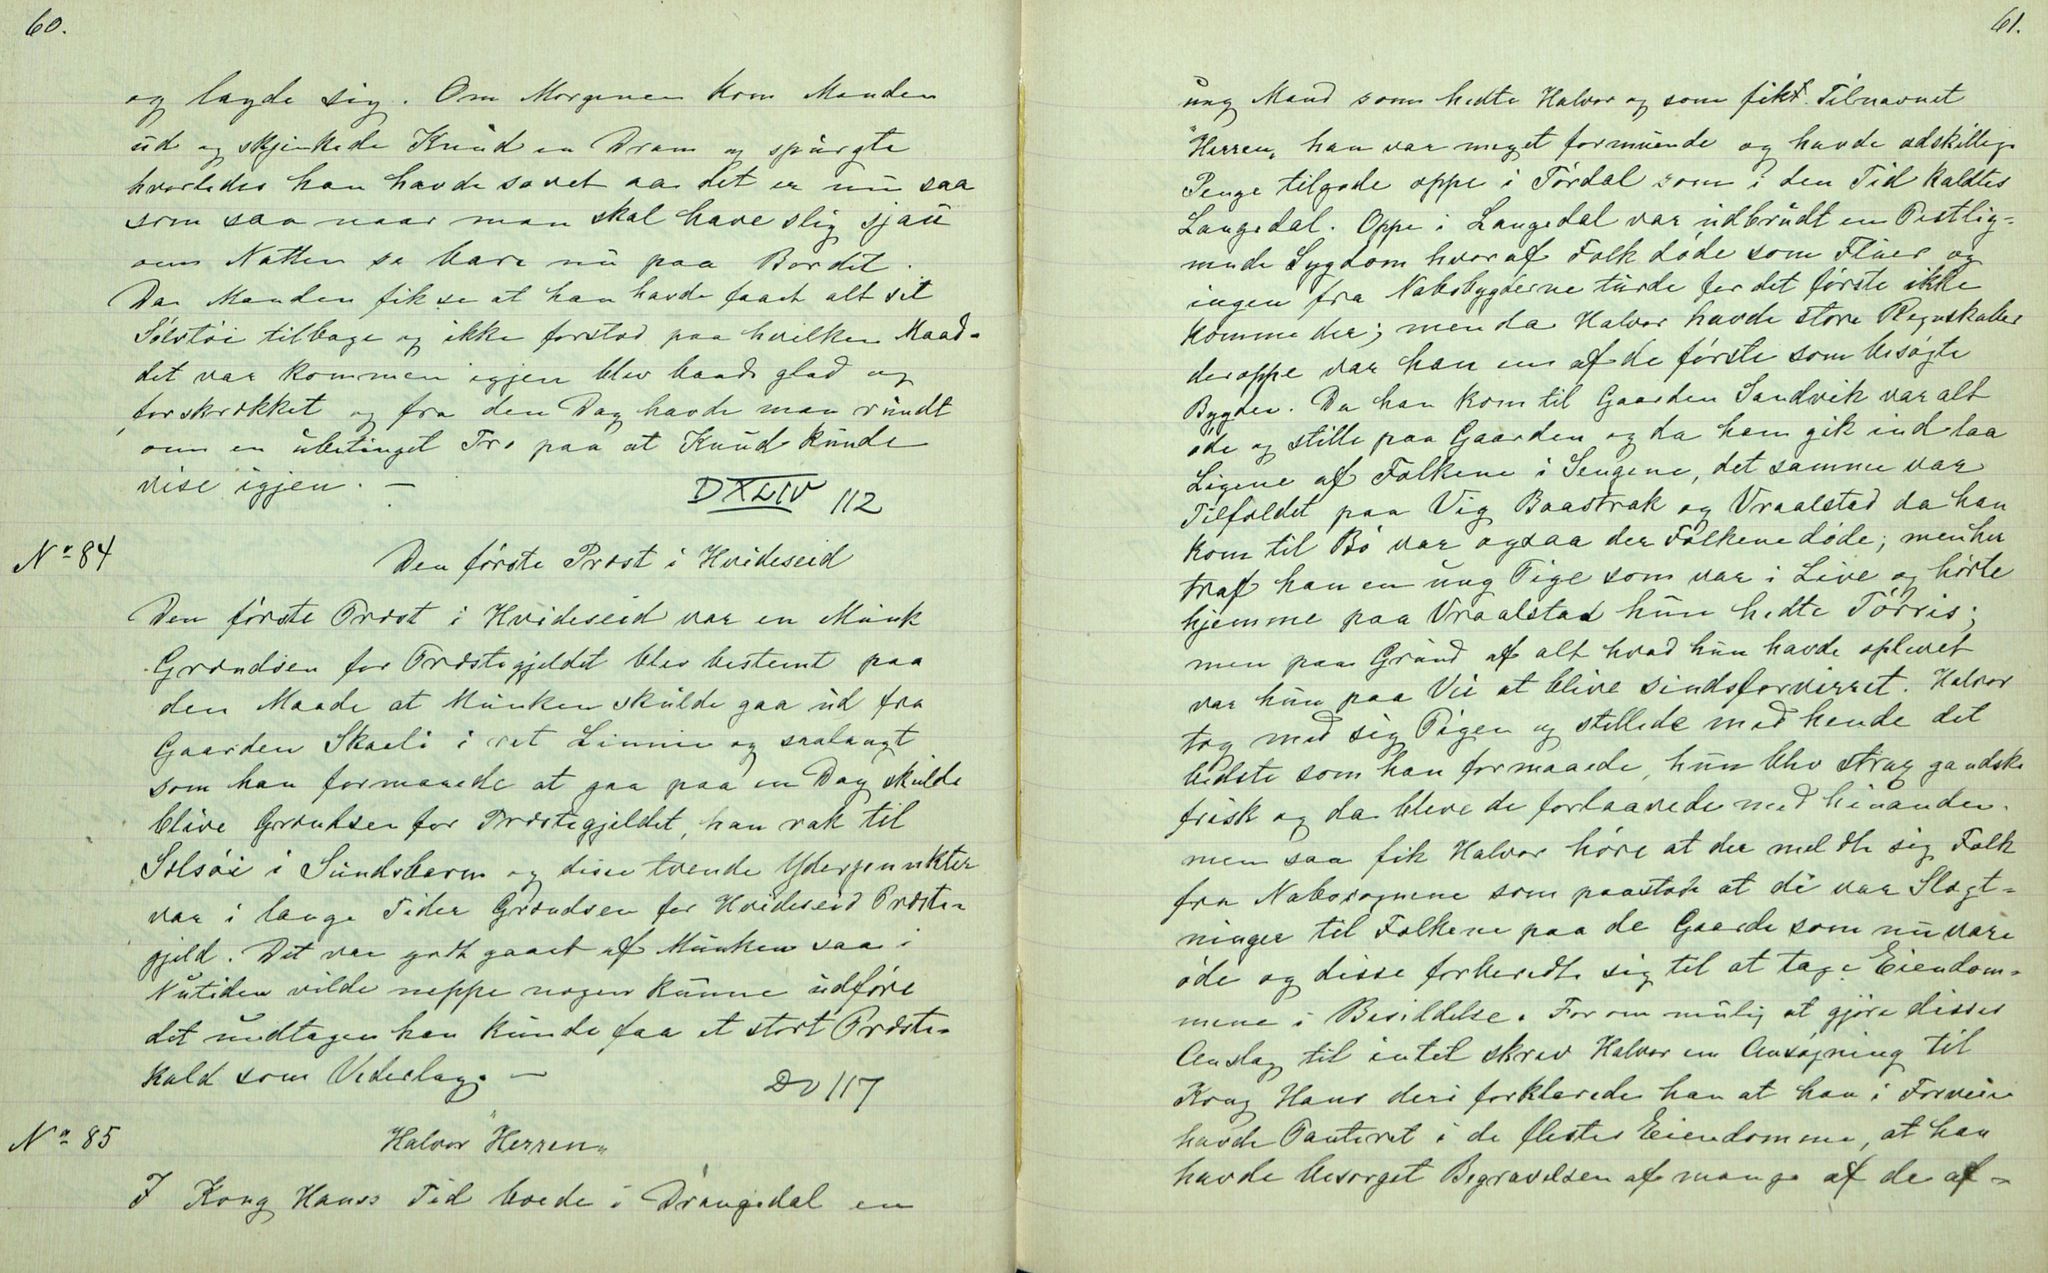 60.
og lagde sig. Om Morgenen kom Manden
ud og skjenkede Knud en Dram og spurgte
hvorledes han havde sovet aa det er nu saa
som saa naar man skal have slig sjau
om Natten se bare nu paa Bordet.
Da Manden fik se at han havde faaet alt sit
Sølvtøi tilbage og ikke forstod paa hvilken Maad-
det var kommen igjen blev baade glad og
forskrækket og fra den Dag havde man rundt
om en ubetinget Tro paa at Knud kunde
vise igjen. —
DXLIV 112
No 84
Den første Præst i Hvideseid
Den første Præst i Hvideseid var en Munk
Grændsen for Præstegjeldet blev bestemt paa
den Maade at Munken skulde gaa ud fra
Gaarden Skaeli i ret Linnie og saalangt
som han formaaede at gaa paa en Dag skulde
blive Grændsen for Præstegjeldet, han rak til
Selsøi i Sundsbarm og disse tvende Yderpunkter
var i lange Tider Grændsen for Hvideseid Præste-
gjeld. Det var godt gaaet af Munken saa i
Nutiden vilde neppe nogen kunne udføre
det undtagen han kunde faa et stort Præste-
kald som Vederlag. —
Do 117
No 85
Halvor "Herren„
I Kong Hanss Tid boede i Drangedal en
61.
ung Mand som hedte Halvor og som fikk Tilnavnet
"Herren„ han var meget formuende og havde adskillige
Penge tilgode oppe i Tørdal som i den Tid kaldtes
Langedal. Oppe i Langedal var udbrudt en Pestlig-
nende Sygdom hvoraf Folk døde som Fluer og
ingen fra Nabobygderne turde for det første ikke
komme der; men da Halvor havde store Regnskaber
deroppe var han en af de første som besøgte
Bygden. Da han kom til Gaarden Sandvik var alt
øde og stille paa Gaarden og da han gik ind laa
Ligene af Folkene i Sengene, det samme var
Tilfældet paa Vig Baastrak og Vraalstad da han
kom til Bø var ogsaa der Folkene døde; men her
traf han en ung Pige som var i Live og hørte
hjemme paa Vraalstad hun hedte Tørris;
men paa Grund af alt hvad hun havde oplevet
var hun paa Vei at blive sindsforvirret. Halvor
tog med sig Pigen og stellede med hende det
bedste som han formaaede, hun blev strax gandske
frisk og da bleve de forlaavede med hinanden.
men saa fik Halvor høre at der meldte sig Folk
fra Nabosognene som paastode at de var Slægt-
ninger til Folkene paa de Gaarde som nu vare
øde og disse forberedte sig til at tage Eiendom-
mene i Besiddelse. For om mulig at gjøre disses
Anslag til intet skrev Halvor en Ansøgning til
Kong Hans deri forklarede han at han i Forveien
havde Panteret i de flestes Eiendomme, at han
havde besørget Begravelsen af mange af de af-